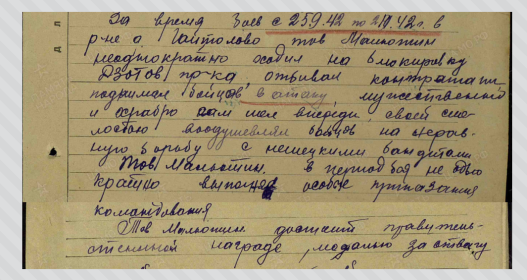 За время боев с 25.9.42 по 2.10.42 г. в
р-не д Гайтолово тов Малютин
неоднократно ходил на блокировку
Дзотов, пр-ка, отбивал контратаки
поднимая бойцов, в атаку, мужественный
и храбро сам шел впереди, своей сме-
лостью воодушевлял бойцов на
ную борьбу с немецкими бандитами
Тов. Малютин, в период боя не одно
кратно выполнял особые приказания
командования
Тов Малютин достоин правитель-
ственной награде, медалью за отвагу